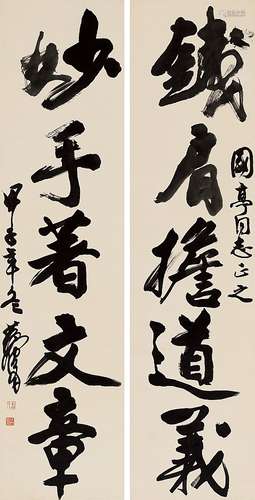 鐵肩擔道義
國亭同志正之
妙手著文章
甲子年冬